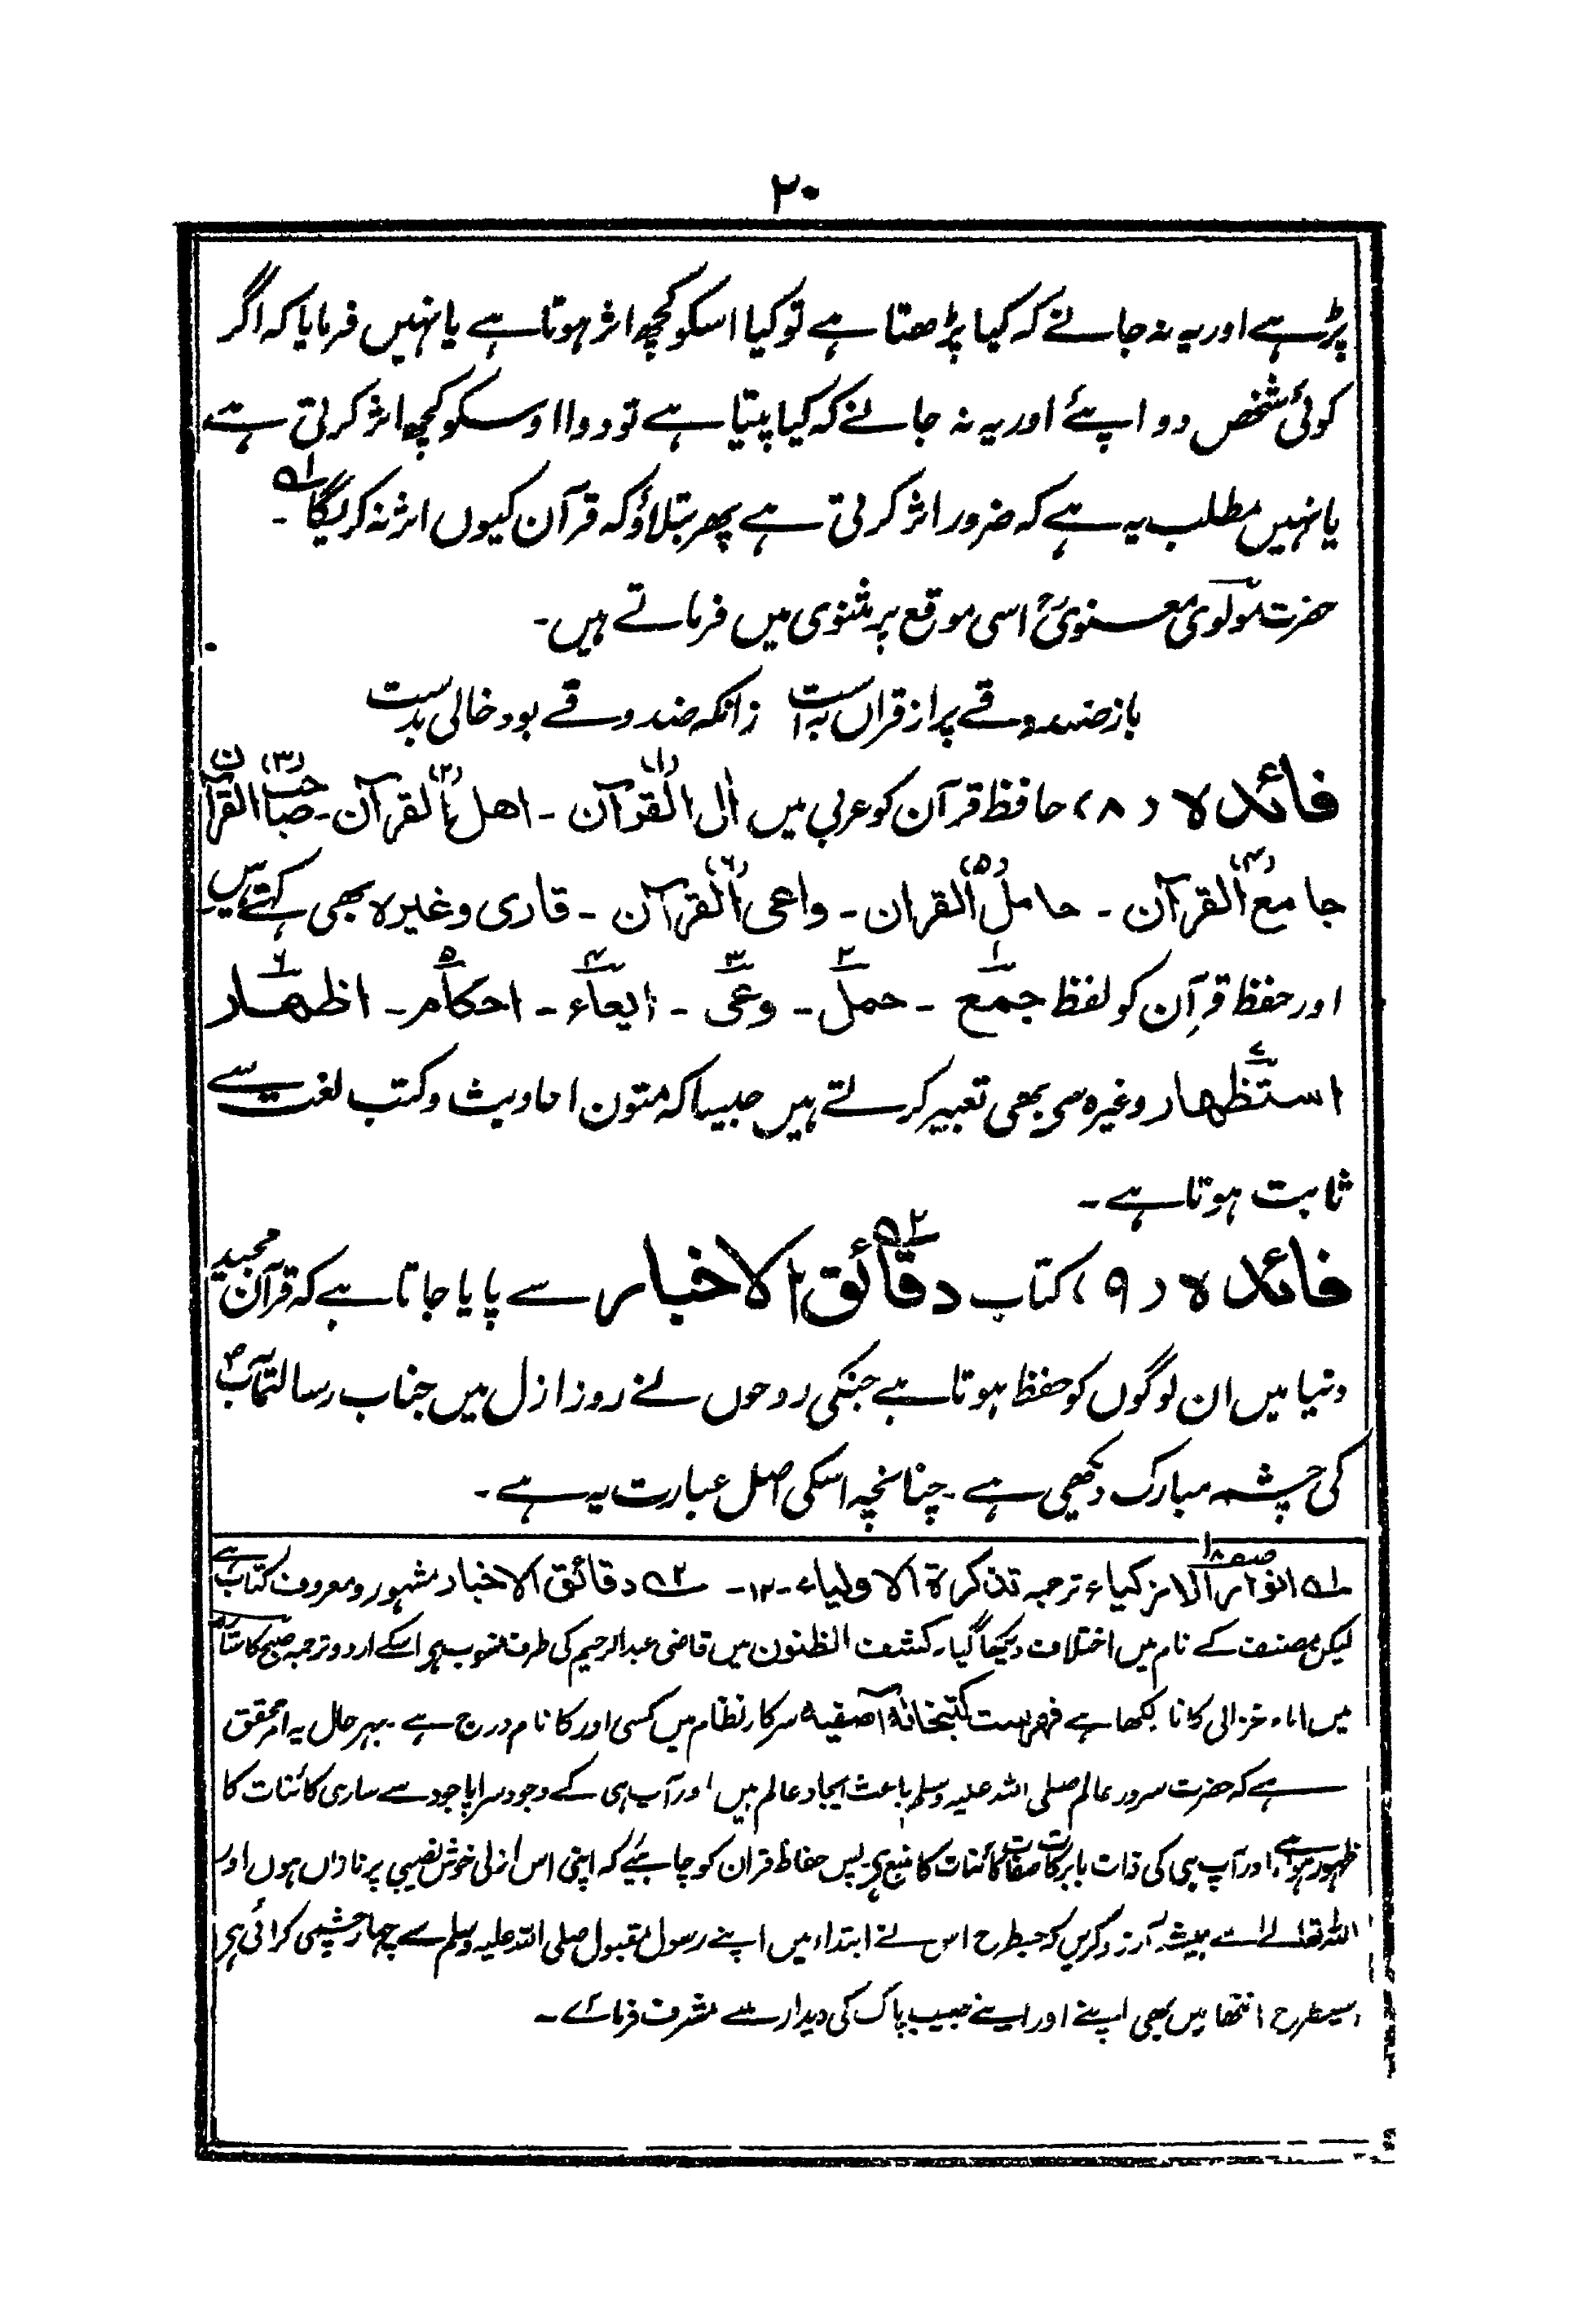 ۲۰
پڑہے اور یہ نہ جانے کہ کیا پڑھتا ہے تو کیا اسکو کچھ اثر ہوتا ہے یا نہیں فرمایا کہ اگر
کوئی شخص دوا پئے اور یہ نہ جانے کہ کیا پیتا ہے تو دوا اوسکو کچھ اثر کرتی ہے
یا نہیں مطلب یہ ہے کہ ضرور اثر کرتی ہے پھر بتلاؤ کہ قرآن کیوں اثر نہ کریگا ۵۱؎۔
حضرت مولوی معنویؒ اسی موقع پر مثنوی میں فرماتے ہیں۔
باز صندوقے پر از قراں بہ است زانکہ صندوقے بود خالی بدست
فائدہ (۸) حافظ قرآن کو عربی میں اٰل القرآن (۱)۔ اھل القرآن (۲)۔ صاحب القرآن (۳)
جامع القرآن (۴)۔ حامل القران (۵)۔ واعی القرآن (۶)۔ قاری وغیرہ بھی کہتے ہیں
اور حفظ قرآن کو لفظ جمع ۱۔ حمل ۲۔ وعی ۳۔ ایعاء ۴۔ احکام ۵۔ اظھار ۶
استظھار ۷ وغیرہ سے بھی تعبیر کرتے ہیں جیسا کہ متون احادیث و کتب لغت سے
ثابت ہوتا ہے۔
فائدہ (۹) کتاب دقائق الاخبار ۵۲؎ سے پایا جاتا ہے کہ قرآن مجید
دنیا میں ان لوگوں کو حفظ ہوتا ہے جنکی روحوں نے روز ازل میں جناب رسالتمآبؐ
کی چشمہ مبارک دیکھی ہے۔ چنانچہ اسکی اصل عبارت یہ ہے۔
۵۱؎ انوار الازکیاء ترجمہ تذکرۃ الاولیاء صفحہ ۱۸۔۱۲۔ ۵۲؎ دقائق الاخبار مشہور و معروف کتاب ہے
لیکن مصنف کے نام میں اختلاف دیکھا گیا۔ کشف الظنون میں قاضی عبدالرحیم کی طرف منسوب ہے اسکے اردو ترجمہ صبح کا ستارہ
میں امام غزالی کا نام لکھا ہے فہرست کتبخانہ آصفیہ سرکار نظام میں کسی اور کا نام درج ہے۔ بہر حال یہ امر محقق
ہے کہ حضرت سرور عالم صلی اللہ علیہ وسلم باعث ایجاد عالم ہیں اور آپ ہی کے وجود سراپا جود سے ساری کائنات کا
ظہور ہوا ہے اور آپ ہی کی ذات بابرکات صفات کائنات کا منبع ہے پس حفاظ قران کو چاہئیے کہ اپنی اس ازلی خوش نصیبی پر نازاں ہوں اور
اللہ تعالےٰ سے ہمیشہ آرزو کریں کہ جسطرح اس نے ابتداء میں اپنے رسول مقبول صلی اللہ علیہ وسلم سے چہار چشمی کرائی ہے
اسیطرح انتھا میں بھی اپنے اور اپنے حبیب پاک کی دیدار سے مشرف فرمائے۔